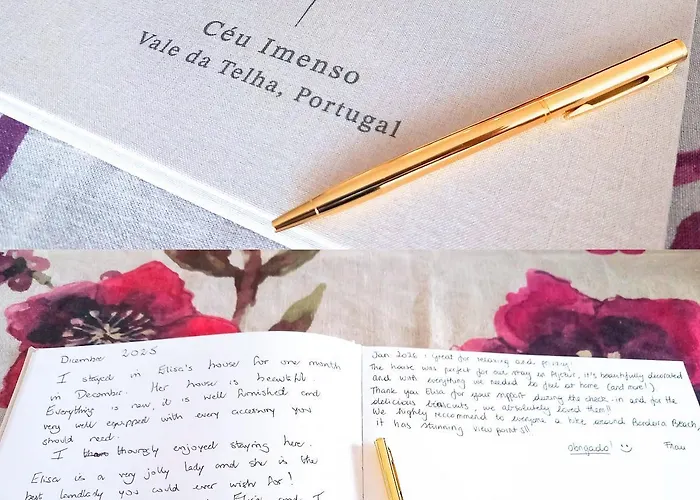 Céu Imenso
Vale da Telha, Portugal
Dicember 2025
I stayed in Elisa's house for one month
in December. Her house is beautiful.
Everything is new, it is well furnished and
very well equipped with every accessory you
should need.
I thourgly enjoyed staying here.
Elisa is a very jolly lady and she is the
best landlady you could ever wish for!
Elisa and I
Jan 2026 : Great for relaxing and
The house was perfect for our stay in Aljezur, it's beautifully decorated
and with everything we needed to feel at home (and more!)
Thank you Elisa for your support during the check-in and for the
delicious biscuits, we absolutely loved them!!
We highly recommend to everyone a hike around Bordeira Beach,
it has stunning view points!!
Obrigado! :)